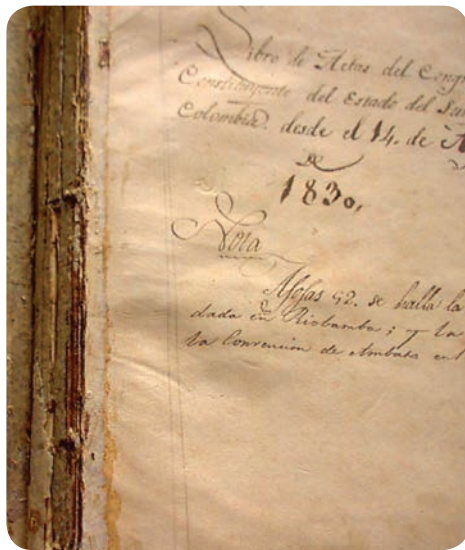 Libro de Actas del Cong
Constituyente del Estado del Su
Colombia. desde el 14. de A
de
1830,
Nota
Afojas 92. se halla la
dada en Riobamba; y la
la Convencion de Ambato en l